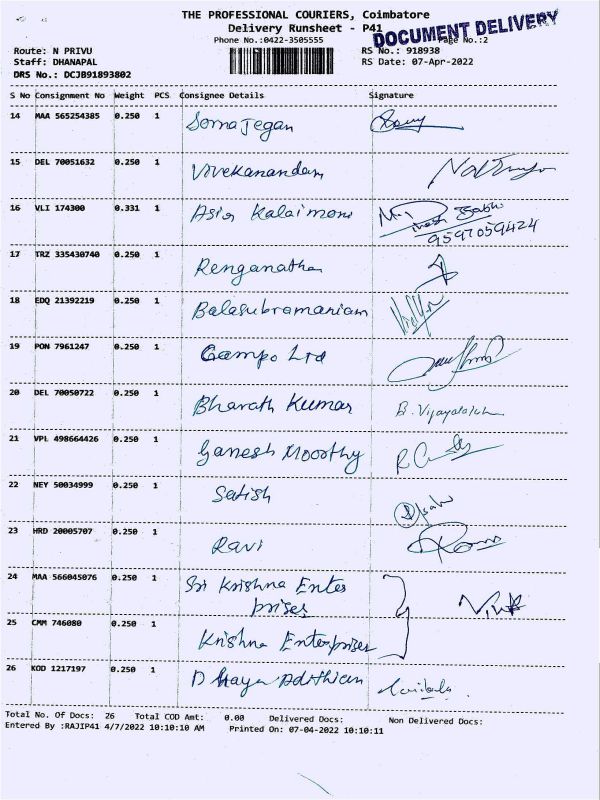 THE PROFESSIONAL COURIERS, Coimbatore
Delivery Runsheet - P41
DOCUMENT DELIVERY
Phone No.:0422-3505555 Page No.:2
Route: N PRIVU RS No.: 918938
Staff: DHANAPAL RS Date: 07-Apr-2022
DRS No.: DCJB91893802
S No Consignment No Weight PCS Consignee Details Signature
14 MAA 565254385 0.250 1 Soma Jegan
15 DEL 70051632 0.250 1 Vivekanandan
16 VLI 174300 0.331 1 Asia Kalaimani
9597059424
17 TRZ 335430740 0.250 1 Renganathan
18 EDQ 21392219 0.250 1 Balasubramaniam
19 PON 7961247 0.250 1 Gampo Ltd
20 DEL 70050722 0.250 1 Bharath Kumar
21 VPL 498664426 0.250 1 Ganesh Moorthy
22 NEY 50034999 0.250 1 Satish
23 HRD 20005707 0.250 1 Ravi
24 MAA 566045076 0.250 1 Sri Krishna Enter
prises
25 CMM 746080 0.250 1 Krishna Enterprises
26 KOD 1217197 0.250 1
Total No. Of Docs: 26 Total COD Amt: 0.00 Delivered Docs: Non Delivered Docs:
Entered By :RAJIP41 4/7/2022 10:10:10 AM Printed On: 07-04-2022 10:10:11